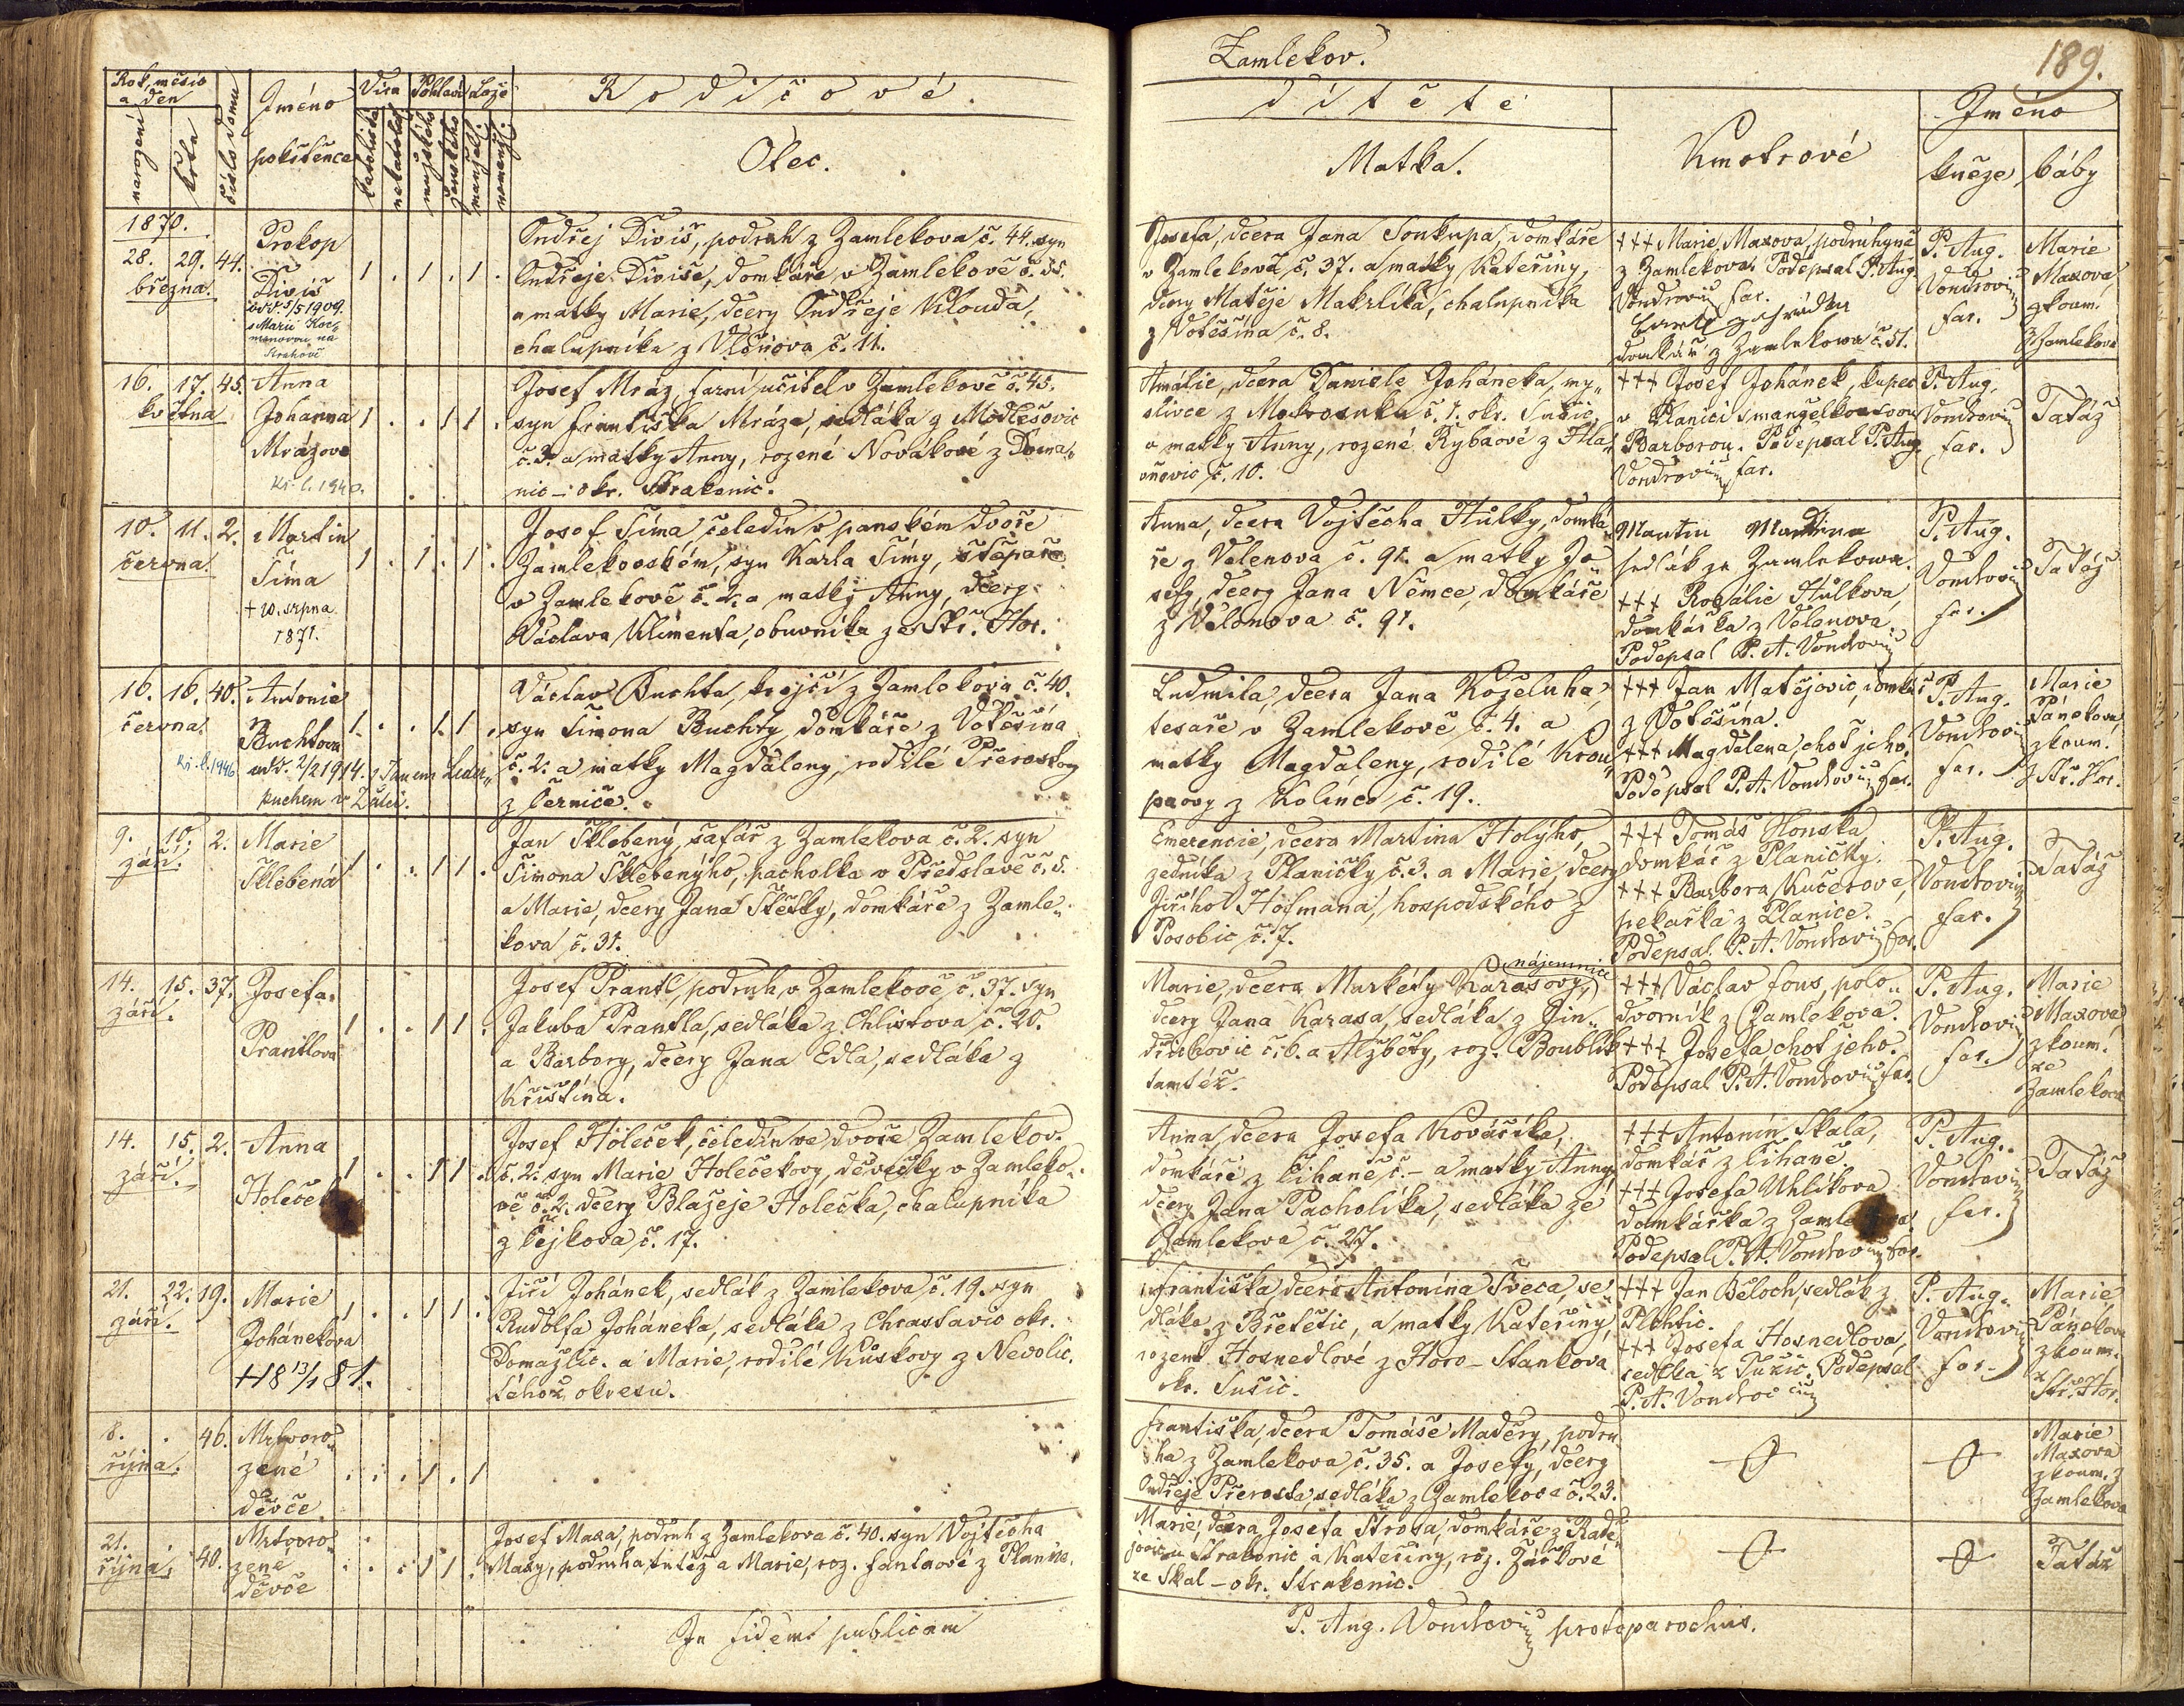 Zamlekov.
189.
Rok, měsíc
a den
narození
křtu
číslo domu
Jméno
pokřtěnce
Víra
katolická
nekatolická
Pohlaví
mužského
ženského
Lože
manžel.
nemanž.
Rodičové
dítěte
Otec.
Matka.
Kmotrové
Jméno
kněze
báby
1870.
28. 29. 44.
března.
Prokop
Diviš
odd. 5/5 1909.
s Marií
na
Strahově
1 . 1 . 1 .
Ondřej Diviš, podruh z Zamlekova č. 44. syn
Ondřeje Diviše, domkáře v Zamlekově č. 35.
a matky Marie, dcery Ondřeje Klouda,
chalupníka z Vlčňova č. 11.
Josefa, dcera Jana Soukupa, domkáře
v Zamlekově č. 37. a matky Kateřiny,
dcery Matěje Makrlíka, chalupníka
z Votěšína č. 8.
+++ Marie Maxova, podruhyně
z Zamlekova. Podepsal P. Aug.
Vondrovic far.
domkář z Zamlekowa č. 51.
P. Aug.
Vondrovic
far.
Marie
Maxova,
zkoum.
z Zamlekova
16. 17. 45.
května
Anna
Johanna
Mrázova
1 . . 1 1 .
Josef Mráz, farní učitel v Zamlekově č. 45.
syn Františka Mráze, sedláka z Modlešovic
č. 3. a matky Anny, rozené Novákové z Doma-
nic – okr. Strakonic.
Amálie, dcera Daniele Joháneka, my-
slivce z Mokrosuku č. 1. okr. Sušic,
a matky Anny, rozené Rybaové z Hla-
ňovic č. 10.
+++ Josef Johánek, kupec
v Planici s manželkou svou
Barborou. Podepsal P. Aug.
Vondrovic far.
P. Aug.
Vondrovic
far.
Tatáž
10. 11. 2.
června.
Martin
Šíma
+ 20. srpna
1871.
1 . 1 . 1 .
Josef Šíma, čeledín v panském dvoře
Zamlekovském, syn Karla Šímy, štěpaře
v Zamlekově č. 2. a matky Anny, dcery
Václava Klimenta, obuvníka ze Stř. Hor.
Anna, dcera Vojtěcha Hůlky, domká-
ře z Velenova č. 91. a matky Jo-
sefy, dcery Jana Němce, domkáře
z Velenova č. 91.
Martin
sedlák ze Zamlekowa.
+++ Rosálie Hůlkova,
domkářka z Velenova.
Podepsal P. A. Vondrovic
P. Aug.
Vondrovic
far.
Tatáž
16. 16. 40.
června.
Antonie
Buchtova
odd. 2/2 1914. s Janem Leder-
puchem v
1 . . 1 1 .
Václav Buchta, krejčí z Zamlekova č. 40.
syn Šimona Buchty, domkáře z Votěšína
č. 2. a matky Magdaleny, rodilé Přerostovy
z Černíče.
Ludmila, dcera Jana Koželuha,
tesaře v Zamlekově č. 4. a
matky Magdaleny, rodilé Krou-
povy z Kolince č. 19.
+++ Jan Matějovic, domkář
z Votěšína.
+++ Magdalena, choť jeho.
Podepsal P. A. Vondrovic far.
P. Aug.
Vondrovic
far.
Marie
Pánekova,
zkoum.
z Stř. Hor.
9. 10. 2.
září.
Marie
Šklebená
1 . . 1 1 .
Jan Šklebený, šafář z Zamlekova č. 2. syn
Šimona Šklebenýho, pacholka v Předslavě č. 5.
a Marie, dcery Jana Štětky, domkáře z Zamle-
kova č. 31.
Emerencie, dcera Martina Holýho,
zedníka z Planičky č. 3. a Marie, dcery
Jiřího Hofmana, hospodského z
Posobic č. 7.
+++ Tomáš Honska
domkář z Planičky.
+++ Barbora Kučerova,
pekařka z Planice.
Podepsal P. A. Vondrovic far.
P. Aug.
Vondrovic
far.
Tatáž
14. 15. 37.
září.
Josefa
Prantlova
1 . . 1 1 .
Josef Prantl, podruh v Zamlekově č. 37. syn
Jakuba Prantla, sedláka z Chlistova č. 20.
a Barbory, dcery Jana Edla, sedláka z
Křištína.
nájemnice
Marie, dcera Markéty Karasovy,
dcery Jana Karasa, sedláka z Jin-
dřichovic č. 6. a Alžběty, roz. Boublík
tamtéž.
+++ Václav Fous, polo-
dvorník z Zamlekova.
+++ Josefa, choť jeho.
Podepsal P. A. Vondrovic far.
P. Aug.
Vondrovic
far.
Marie
Maxova
zkoum.
ze
Zamlekova
14. 15. 2.
září.
Anna
1 . . 1 1 .
Josef Holeček, čeledín ve dvoře Zamlekov.
č. 2. syn Marie Holečekovy, děvečky v Zamleko-
vě č. 2. dcery Blažeje Holečka, chalupníka
z Čejkova č. 17.
Anna, dcera Josefa Kováříka,
domkáře z Čihaně č. – a matky Anny,
dcery Jana Pacholíka, sedláka ze
Zamlekova č. 27.
+++ Antonín Skala,
domkář z Čihaně.
+++ Josefa Uhlíkova
domkářka z Zamlekova
Podepsal P. A. Vondrovic far.
P. Aug.
Vondrovic
far.
Tatáž
21. 22. 19.
září.
Marie
Johánekova
+ 18 13/1 81.
1 . . 1 1 .
Jiří Johánek, sedlák z Zamlekova č. 19. syn
Rudolfa Joháneka, sedláka z Chrastavic okr.
Domažlic. a Marie, rodilé Kuskovy z Nevolic,
téhož okresu.
Františka, dcera Antonína Švece, se-
dláka z Břetětic, a matky Kateřiny,
rozené Hosnedlové z Horo-Stankova
okr. Sušic.
+++ Jan Běloch, sedlák z
Plichtic.
+++ Josefa Hosnedlova,
sedlka z Podepsal
P. A. Vondrovic
P. Aug.
Vondrovic
far.
Marie
Pánekova
zkoum.
z
Stř. Hor.
8. . 46.
října.
Mrtvoro-
zené
děvče.
. . . 1 . 1
Františka, dcera Tomáše Maděry, podru-
ha z Zamlekova č. 35. a Josefy, dcery
Ondřeje Přerosta, sedláka z Zamlekova č. 23.
Marie
Maxova
zkoum. z
Zamlekova
21. . 40.
října.
Mrtvoro-
zené
děvče
. . . 1 1 .
Josef Maxa, podruh z Zamlekova č. 40. syn Vojtěcha
Maxy, podruha tutéž a Marie, roz. Fantové z Planice.
Marie, dcera Josefa Štrosa, domkáře z Radě-
jovic u Strakonic a Kateřiny, roz. Žárkové
ze Skal – okr. Strakonic.
Tatáž
In fidem publicam
P. Aug. Vondrovic protoparochus.